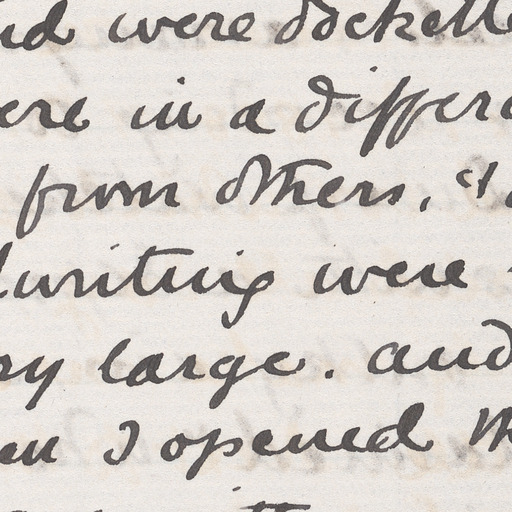 were dockette
in a differ
from others, &
writing were
large. and
I opened th